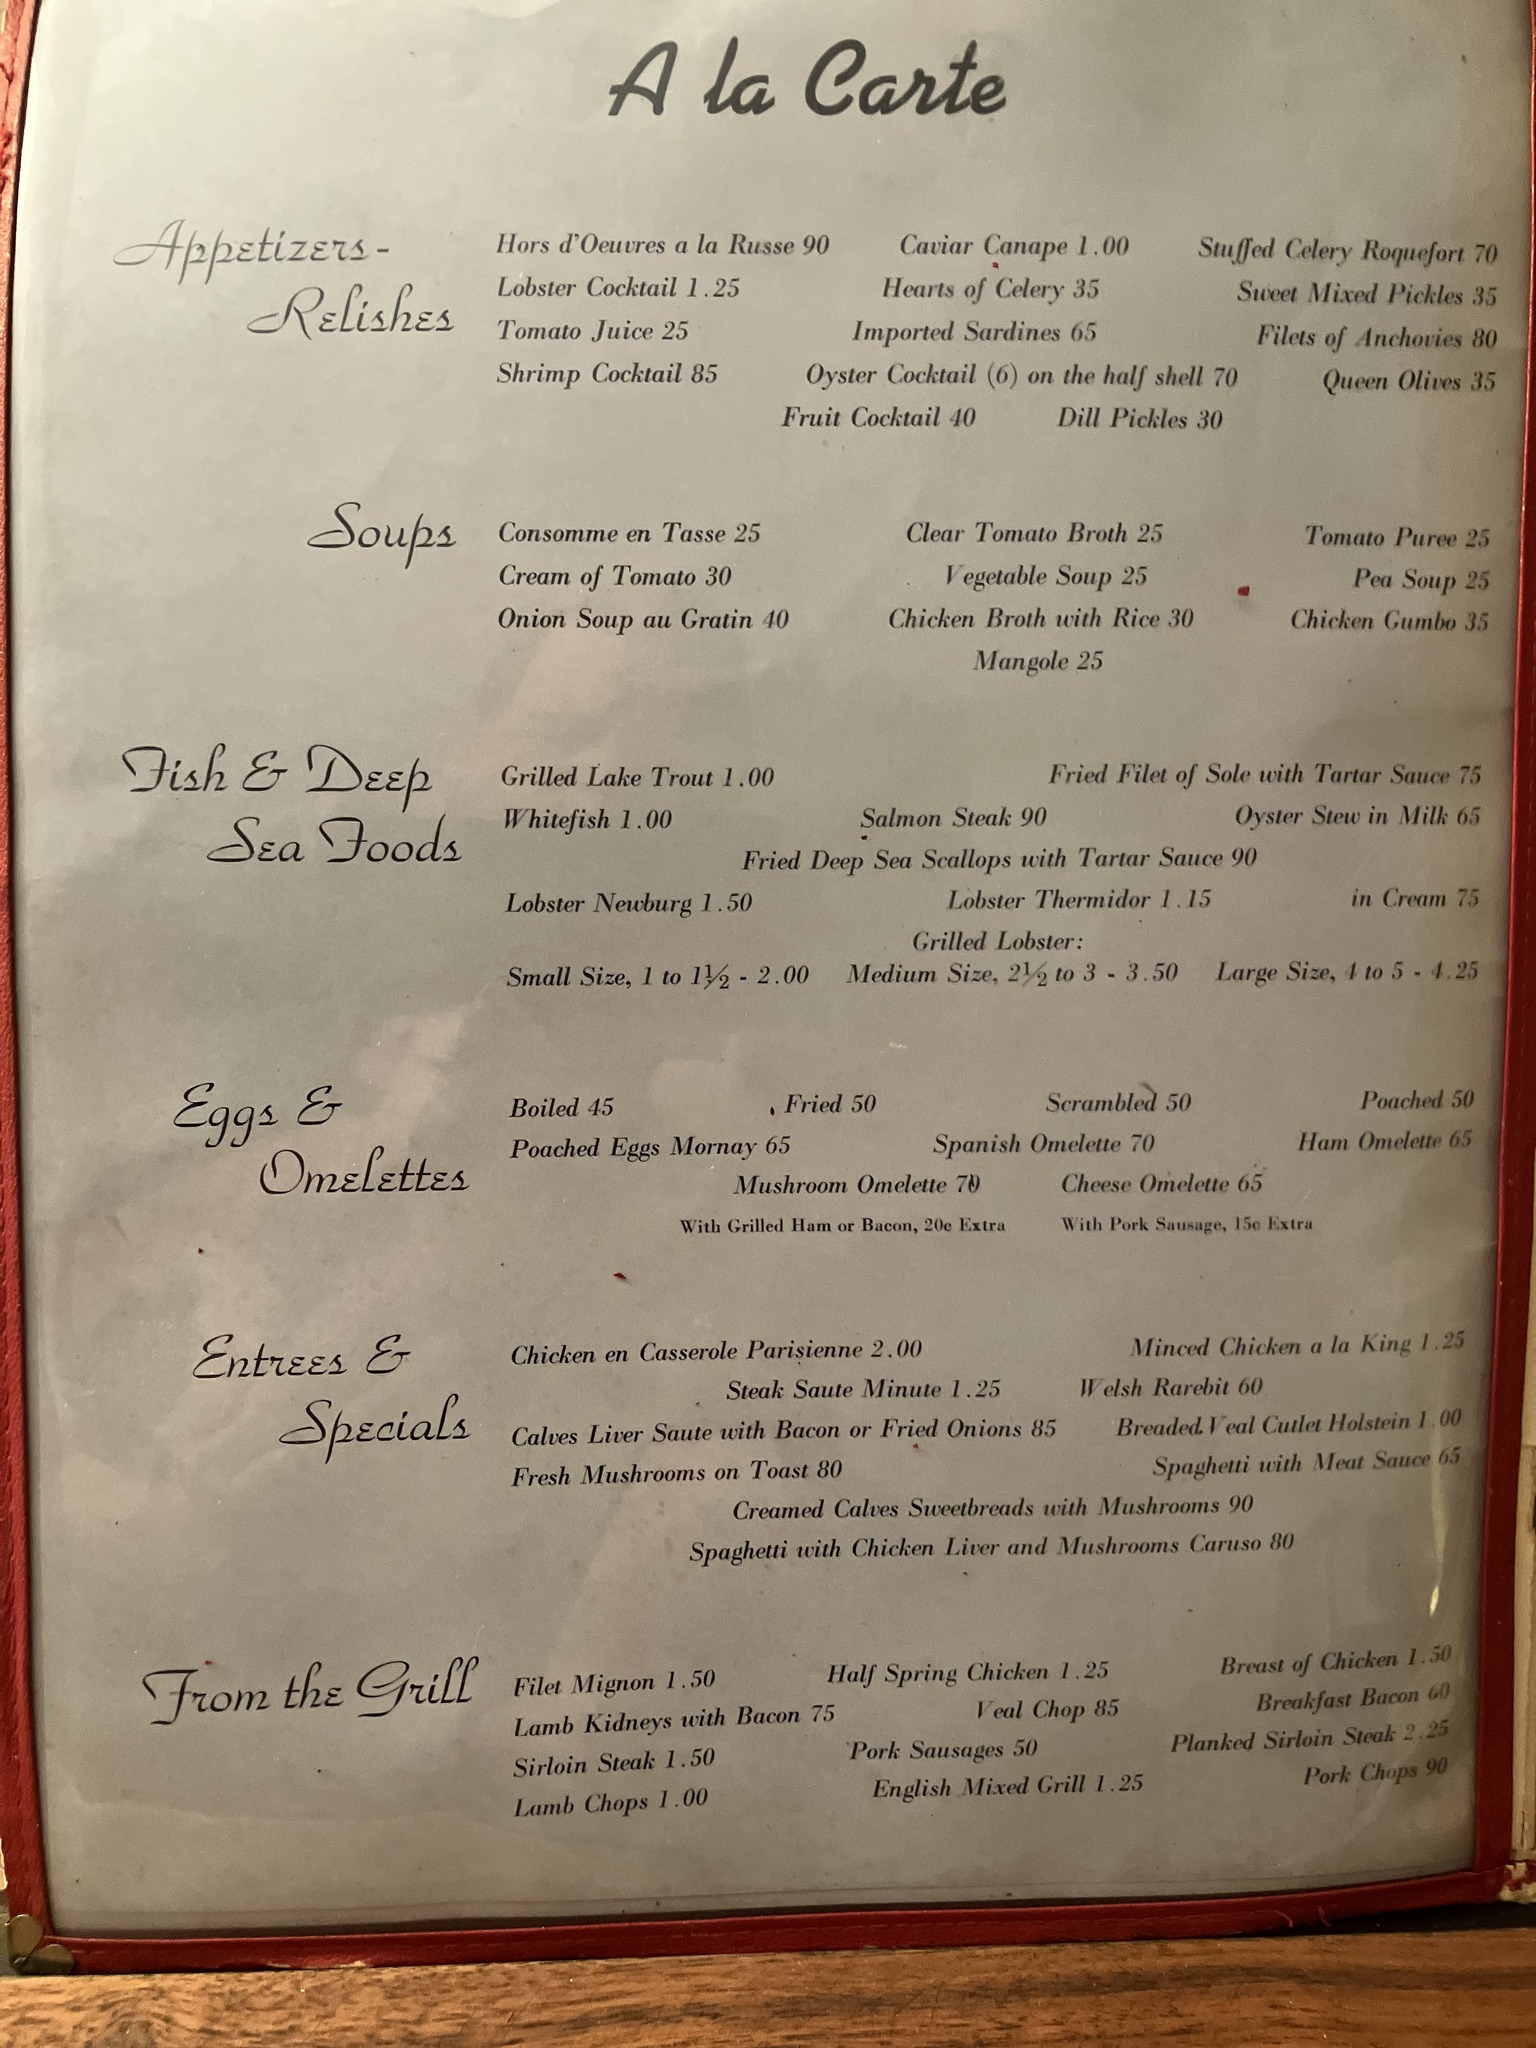 A la Carte
Appetizers -
Relishes
Hors d'Oeuvres a la Russe 90 Caviar Canape 1.00 Stuffed Celery Roquefort 70
Lobster Cocktail 1.25 Hearts of Celery 35 Sweet Mixed Pickles 35
Tomato Juice 25 Imported Sardines 65 Filets of Anchovies 80
Shrimp Cocktail 85 Oyster Cocktail (6) on the half shell 70 Queen Olives 35
Fruit Cocktail 40 Dill Pickles 30
Soups
Consomme en Tasse 25 Clear Tomato Broth 25 Tomato Puree 25
Cream of Tomato 30 Vegetable Soup 25 Pea Soup 25
Onion Soup au Gratin 40 Chicken Broth with Rice 30 Chicken Gumbo 35
Mangole 25
Fish & Deep
Sea Foods
Grilled Lake Trout 1.00 Fried Filet of Sole with Tartar Sauce 75
Whitefish 1.00 Salmon Steak 90 Oyster Stew in Milk 65
Fried Deep Sea Scallops with Tartar Sauce 90
Lobster Newburg 1.50 Lobster Thermidor 1.15 in Cream 75
Grilled Lobster:
Small Size, 1 to 1½ - 2.00 Medium Size, 2½ to 3 - 3.50 Large Size, 4 to 5 - 4.25
Eggs &
Omelettes
Boiled 45 Fried 50 Scrambled 50 Poached 50
Poached Eggs Mornay 65 Spanish Omelette 70 Ham Omelette 65
Mushroom Omelette 70 Cheese Omelette 65
With Grilled Ham or Bacon, 20c Extra With Pork Sausage, 15c Extra
Entrees &
Specials
Chicken en Casserole Parisienne 2.00 Minced Chicken a la King 1.25
Steak Saute Minute 1.25 Welsh Rarebit 60
Calves Liver Saute with Bacon or Fried Onions 85 Breaded Veal Cutlet Holstein 1.00
Fresh Mushrooms on Toast 80 Spaghetti with Meat Sauce 65
Creamed Calves Sweetbreads with Mushrooms 90
Spaghetti with Chicken Liver and Mushrooms Caruso 80
From the Grill
Filet Mignon 1.50 Half Spring Chicken 1.25 Breast of Chicken 1.50
Lamb Kidneys with Bacon 75 Veal Chop 85 Breakfast Bacon 60
Sirloin Steak 1.50 Pork Sausages 50 Planked Sirloin Steak 2.25
Lamb Chops 1.00 English Mixed Grill 1.25 Pork Chops 90